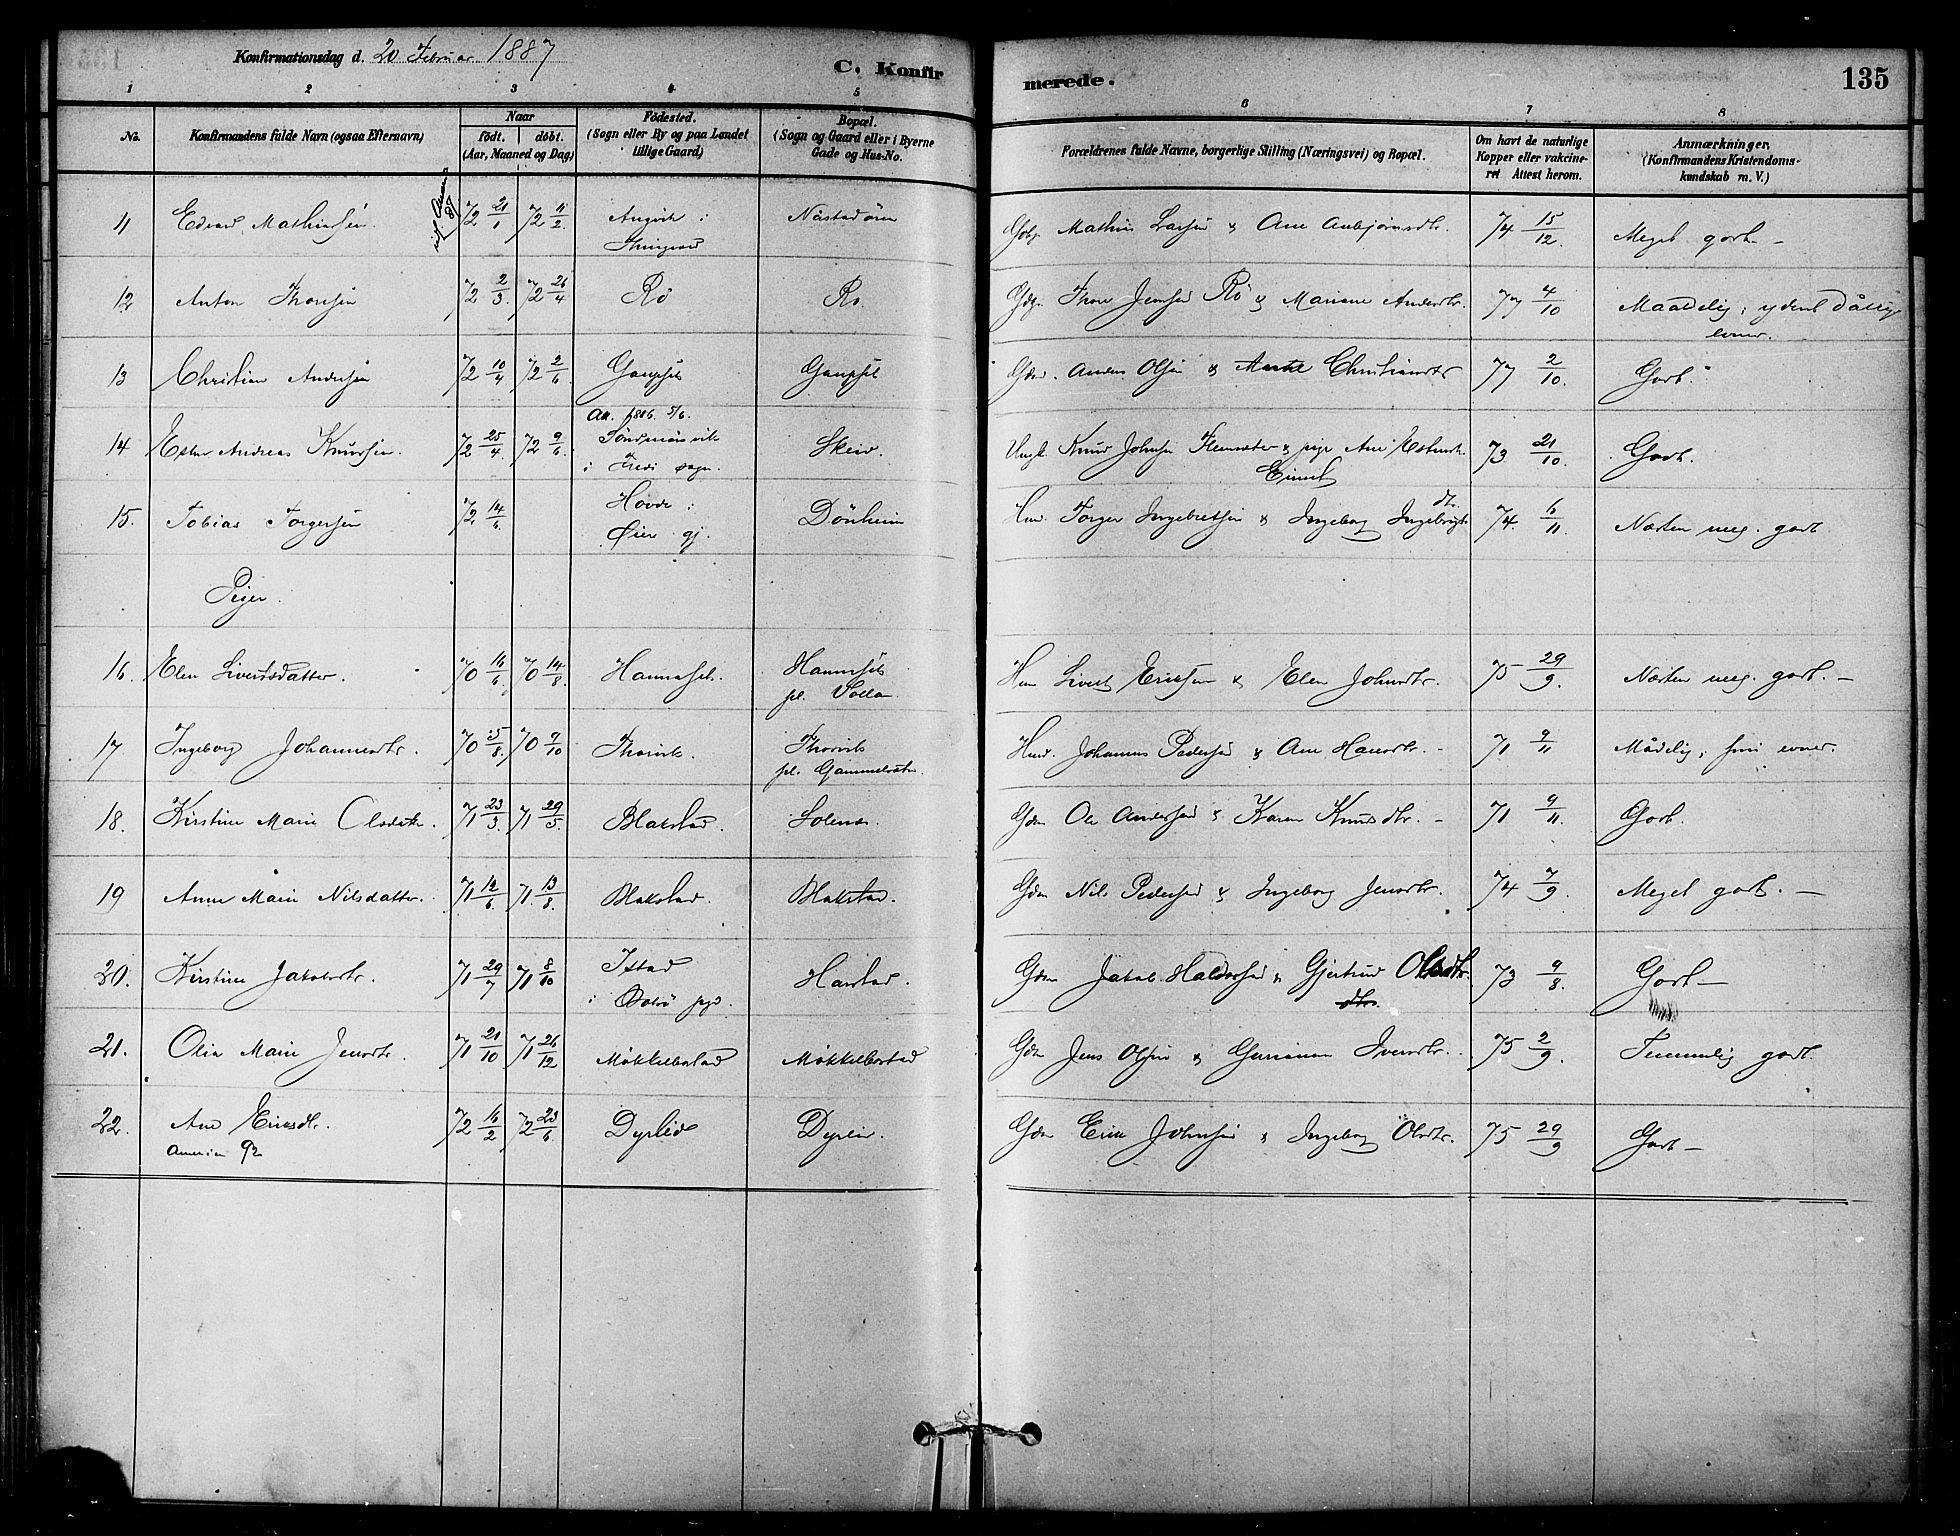 Konfirmationsdag d. 20 Februar 1887
C. Konfir
merede.
135
1 2 3 4 5 6 7 8
No.
Konfirmandens fulde Navn (ogsaa Efternavn)
Naar
födt. döbt.
(Aar, Maaned og Dag)
Födested.
(Sogn eller By og paa Landet
tillige Gaard)
Bopæl.
(Sogn og Gaard eller i Byerne
Gade og Hus-No.
Forældrenes fulde Navne, borgerlige Stilling (Næringsvei) og Bopæl.
Om havt de naturlige
Kopper eller vakcine-
ret Attest herom.
Anmærkninger,
(Konfirmandens Kristendoms-
kundskab m. V.)
11 Edvard Mathiassen. 72 21/1 72 11/2 i Mathias Larsen & Ane 74 15/12. Meget godt —
12 Anton Thorsen 72 2/3. 72 26/4 Rö Ro. Thore Jensen Rö & Mariane Andersdtr. 77 4/10 Maadelig; ydent dålige
evner.
13 Christian Andersen 72 10/4 72 2/6. Gaupset Gaupset Anders Olsen & Christiansdtr 77 2/10. Godt.
1886 5/6.
14 Andreas Knudsen 72 25/4 72 9/6 i sogn. Skeid Knud Johnsen & pige Ane 73 21/10. Godt.
15. Tobias Torgersen 72 14/6 Hovde i
Öier gj. Dönheim Torger Ingebretsen & Ingeborg Ingebrigts
dtr. 74 6/11 Næsten meg. godt
Piger.
16. Elen Sivertsdatter. 70 16/6 70 14/8. Hammset. Hammset
pl. Sivert Eriksen & Elen Johnsdtr. 75 29/9. Næsten meg. godt. —
17 Ingeborg Johannesdtr. 70 5/8. 70 9/10 Thorvik. Thorvik
pl. Johannes Pedersen & Ane Hansdtr. 71 9/11 Mådelig; små evner.
18. Kirstine Marie Olsdatr. 71 23/3. 71 29/5. Blakstad. Solem. Gdm Ole Andersen & Karen Knudsdtr. – 71 9/11. Godt.
19 Anne Marie Nilsdatter. 71 12/6 71. 13/8. Blakstad. Blakstad. Gdm Nils Pedersen & Ingeborg Jensdtr. 74 7/9. Meget godt. —
20. Kirstine Jakobsdtr. 71 29/7 71 8/10 Istad
i Bolsö pgd. Harstad. Gdm Jakob Haldorsen & Gjertrud Olsdtr. 73 9/8. Godt —
21. Olia Marie Jensdtr. 71 21/10 71 26/12 Mökkelbostad Mökkelbostad Gdm Jens Olsen & Iversdtr. 75 2/9. Temmelig godt.
22. Ane Eriksdtr. 72 16/2 72 23/6 Dyrlid Dyrlid. Gdm Erik Johnsen & Ingeborg Olsdtr. 75 29/9 Godt —
Amerika 92